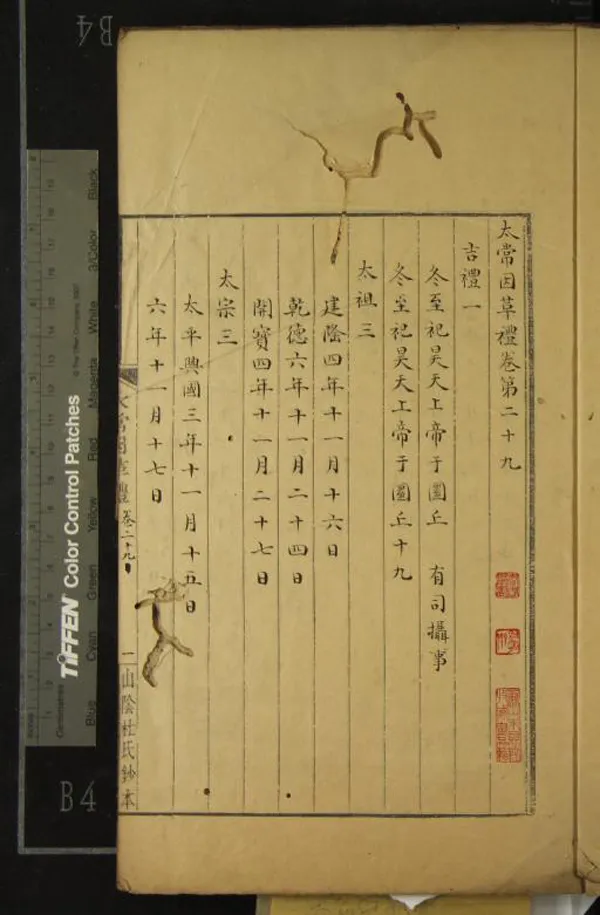 太常因革禮卷第二十九
吉禮一
冬至祀昊天上帝于圜丘 有司攝事
冬至祀昊天上帝于圜丘十九
太祖三
建隆四年十一月十六日
乾德六年十一月二十四日
開寶四年十一月二十七日
太宗三
太平興國三年十一月十五日
六年十一月十七日
太常因革禮 卷二十九 一 山陰杜氏鈔本
B4
B4
TIFFEN Color Control Patches
© The Tiffen Company, 2007
Centimetres
Blue Cyan Green Yellow Red Magenta White 3/Color Black